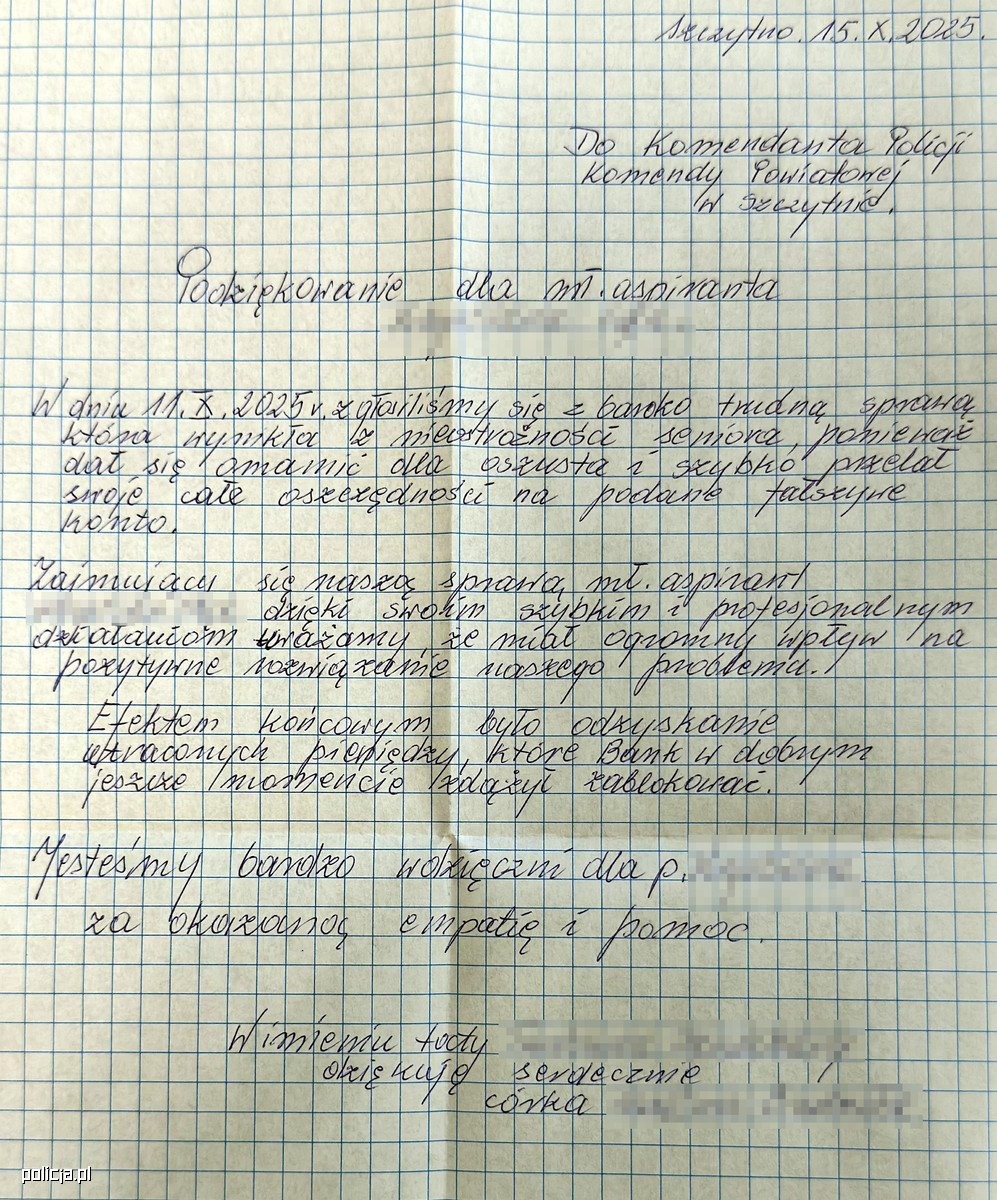 Szczytno. 15.X.2025.
Do Komendanta Policji
Komendy Powiatowej
w Szczytnie.
Podziękowanie dla mł. aspiranta
W dniu 11.X.2025r. zgłosiliśmy się z bardzo trudną sprawą
która wynikła z nieostrożności seniora, ponieważ
dał się omamić dla oszusta i szybko przelał
swoje całe oszczędności na podane fałszywe
konto.
Zajmujący się naszą sprawą mł. aspirant
dzięki swoim szybkim i profesjonalnym
działaniom uważamy, że miał ogromny wpływ na
pozytywne rozwiązanie naszego problemu.
Efektem końcowym było odzyskanie
utraconych pieniędzy, które Bank w dobrym
jeszcze momencie zdążył zablokować.
Jesteśmy bardzo wdzięczni dla p.
za okazaną empatię i pomoc.
W imieniu taty
dziękuję serdecznie
córka
policja.pl